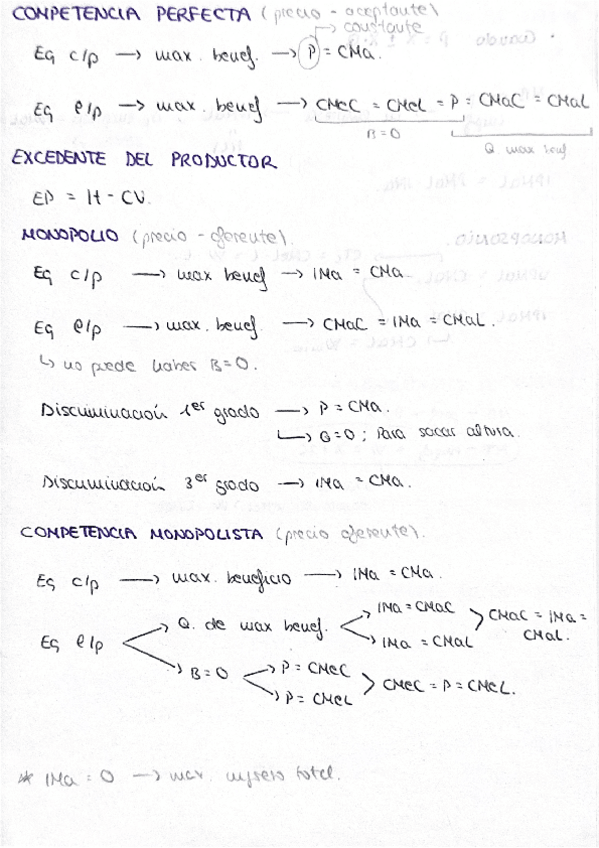 COMPETENCIA PERFECTA (precio - aceptante)
→ constante
Eq c/p → max. benef. → P = CMa.
Eq l/p → max. benef → CMeC = CMeL = P = CMaC = CMaL
B=0
Q. max benf
EXCEDENTE DEL PRODUCTOR
EP = It - CV.
MONOPOLIO (precio - oferente).
Eq c/p → max benef → IMa = CMa.
Eq l/p → max. benef. → CMaC = IMa = CMaL.
↳ no puede haber B=0.
Discriminación 1er grado → P = CMa.
↳ Q=0 ; Para sacar altura.
Discriminación 3er grado → IMa = CMa.
COMPETENCIA MONOPOLISTA (precio oferente).
Eq c/p → max. beneficio → IMa = CMa.
Eq l/p → Q. de max benef. → IMa = CMaC → IMa = CMaL > CMaC = IMa = CMaL.
→ B=0 → P = CMeC → P = CMeL > CMeC = P = CMeL.
* IMa = 0 → max. ingreso total.